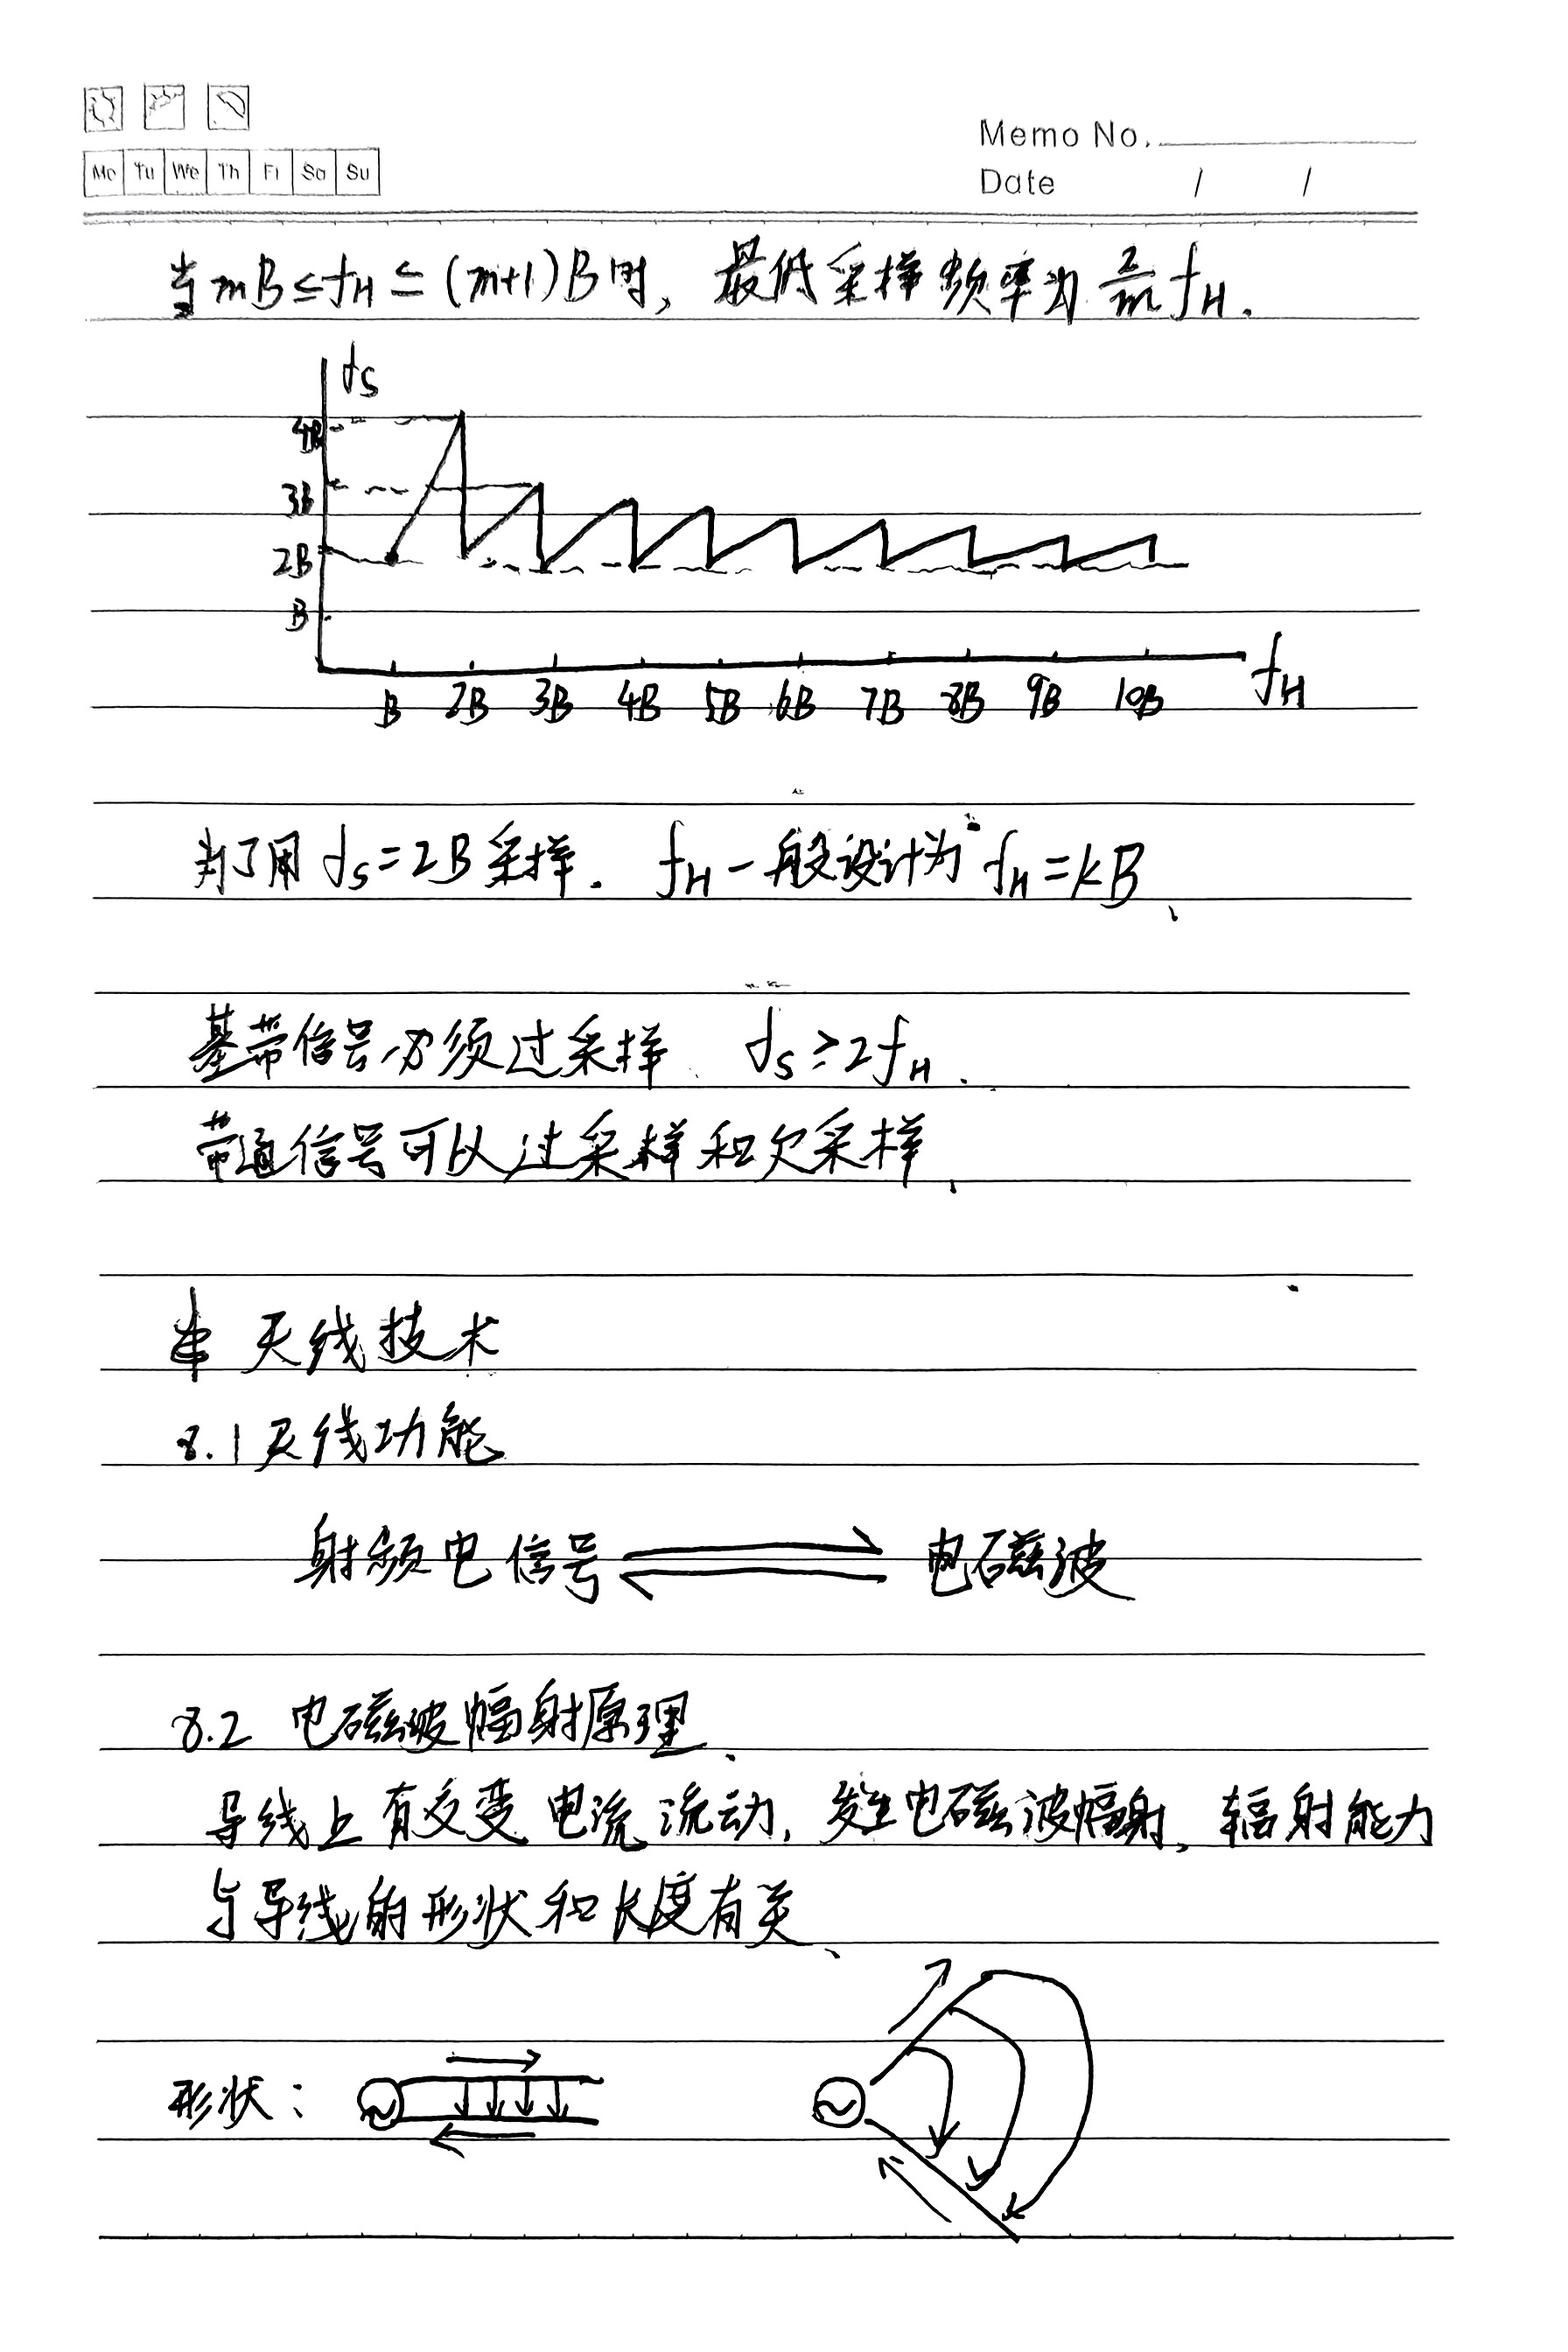 Mo Tu We Th Fr Sa Su
Memo No.
Date / /
当mB≤fH≤(m+1)B时, 最低采样频率为 2/m fH.
fs
4B
3B
2B
B
B 2B 3B 4B 5B 6B 7B 8B 9B 10B fH
为了用 fs=2B采样. fH一般设计为 fH=kB、
基带信号必须过采样、 fs≥2fH、
带通信号可以过采样和欠采样、
天线技术
8.1 天线功能
射频电信号 电磁波
8.2 电磁波幅射原理、
导线上有交变电流流动, 发生电磁波幅射、辐射能力
与导线的形状和长度有关、
形状: